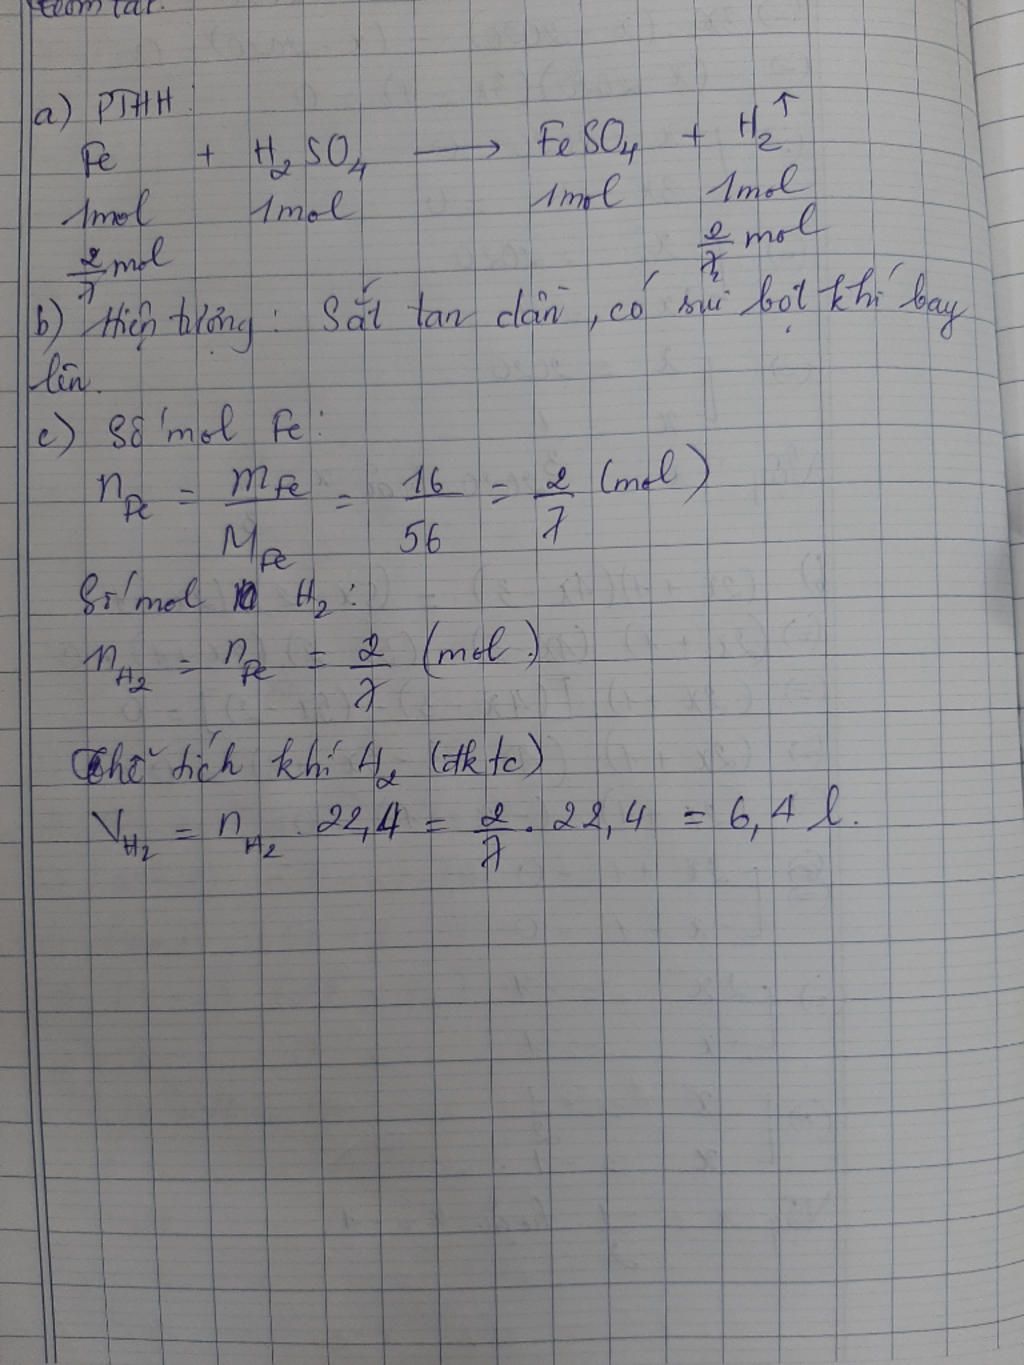 Tóm tắt:
a) PTHH:
Fe + H₂SO₄ ⟶ FeSO₄ + H₂↑
1mol 1mol 1mol 1mol
2/7 mol 2/7 mol
b) Hiện tượng: Sắt tan dần, có sủi bọt khí bay
lên.
c) Số mol Fe:
n_Fe = m_Fe/M_Fe = 16/56 = 2/7 (mol)
Số mol H₂:
n_H₂ = n_Fe = 2/7 (mol)
Thể tích khí H₂ (đktc)
V_H₂ = n_H₂ . 22,4 = 2/7 . 22,4 = 6,4 l.